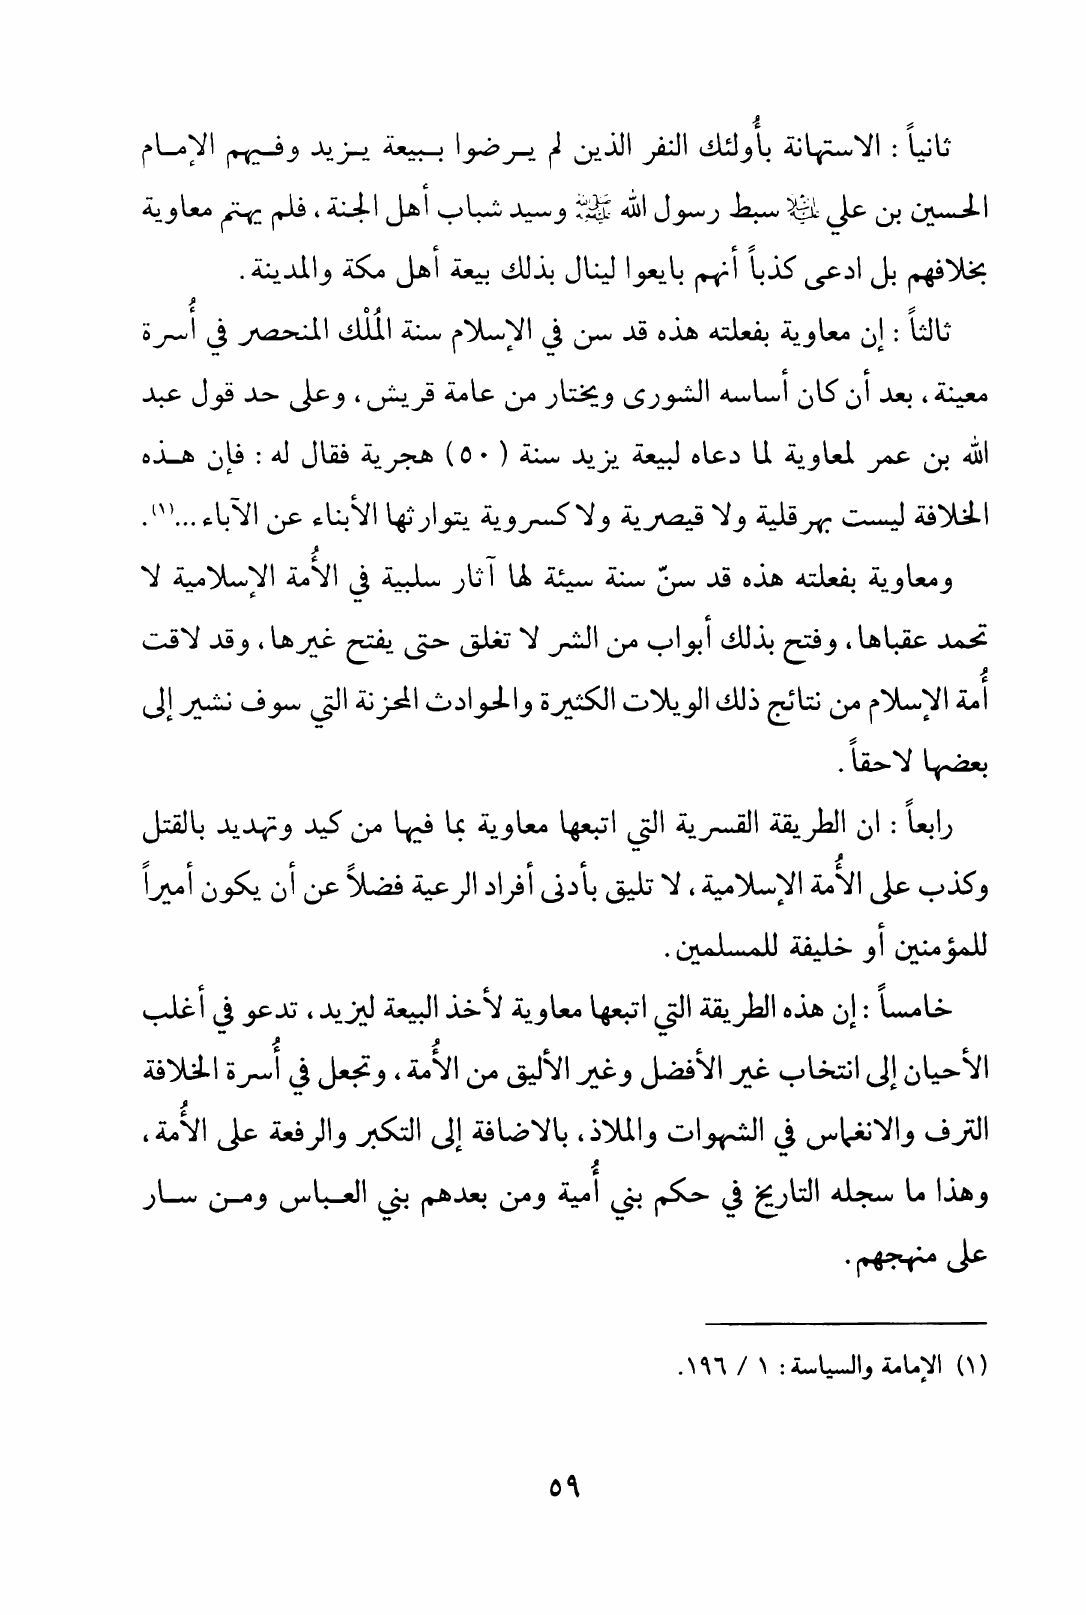 ثانياً : الاستهانة بأُولئك النفر الذين لم يـرضوا بـبيعة يـزيد وفـيهم الإمـام
الحسين بن علي ﵇ سبط رسول الله ﷺ وسيد شباب أهل الجنة ، فلم يهتم معاوية
بخلافهم بل ادعى كذباً أنهم بايعوا لينال بذلك بيعة أهل مكة والمدينة .
ثالثاً : إن معاوية بفعلته هذه قد سن في الإسلام سنة المُلْك المنحصر في أُسرة
معينة ، بعد أن كان أساسه الشورى ويختار من عامة قريش ، وعلى حد قول عبد
الله بن عمر لمعاوية لما دعاه لبيعة يزيد سنة ( ٥٠ ) هجرية فقال له : فإن هـذه
الخلافة ليست بهرقلية ولا قيصرية ولا كسروية يتوارثها الأبناء عن الآباء ...(١).
ومعاوية بفعلته هذه قد سنّ سنة سيئة لها آثار سلبية في الأُمة الإسلامية لا
تحمد عقباها ، وفتح بذلك أبواب من الشر لا تغلق حتى يفتح غيرها ، وقد لاقت
أُمة الإسلام من نتائج ذلك الويلات الكثيرة والحوادث المحزنة التي سوف نشير إلى
بعضها لاحقاً .
رابعاً : ان الطريقة القسرية التي اتبعها معاوية بما فيها من كيد وتهديد بالقتل
وكذب على الأُمة الإسلامية ، لا تليق بأدنى أفراد الرعية فضلاً عن أن يكون أميراً
للمؤمنين أو خليفة للمسلمين .
خامساً : إن هذه الطريقة التي اتبعها معاوية لأخذ البيعة ليزيد ، تدعو في أغلب
الأحيان إلى انتخاب غير الأفضل وغير الأليق من الأُمة ، وتجعل في أُسرة الخلافة
الترف والانغماس في الشهوات والملاذ ، بالاضافة إلى التكبر والرفعة على الأُمة ،
وهذا ما سجله التاريخ في حكم بني أُمية ومن بعدهم بني العـباس ومـن سـار
على منهجهم .
(١) الإمامة والسياسة : ١ / ١٩٦ .
٥٩